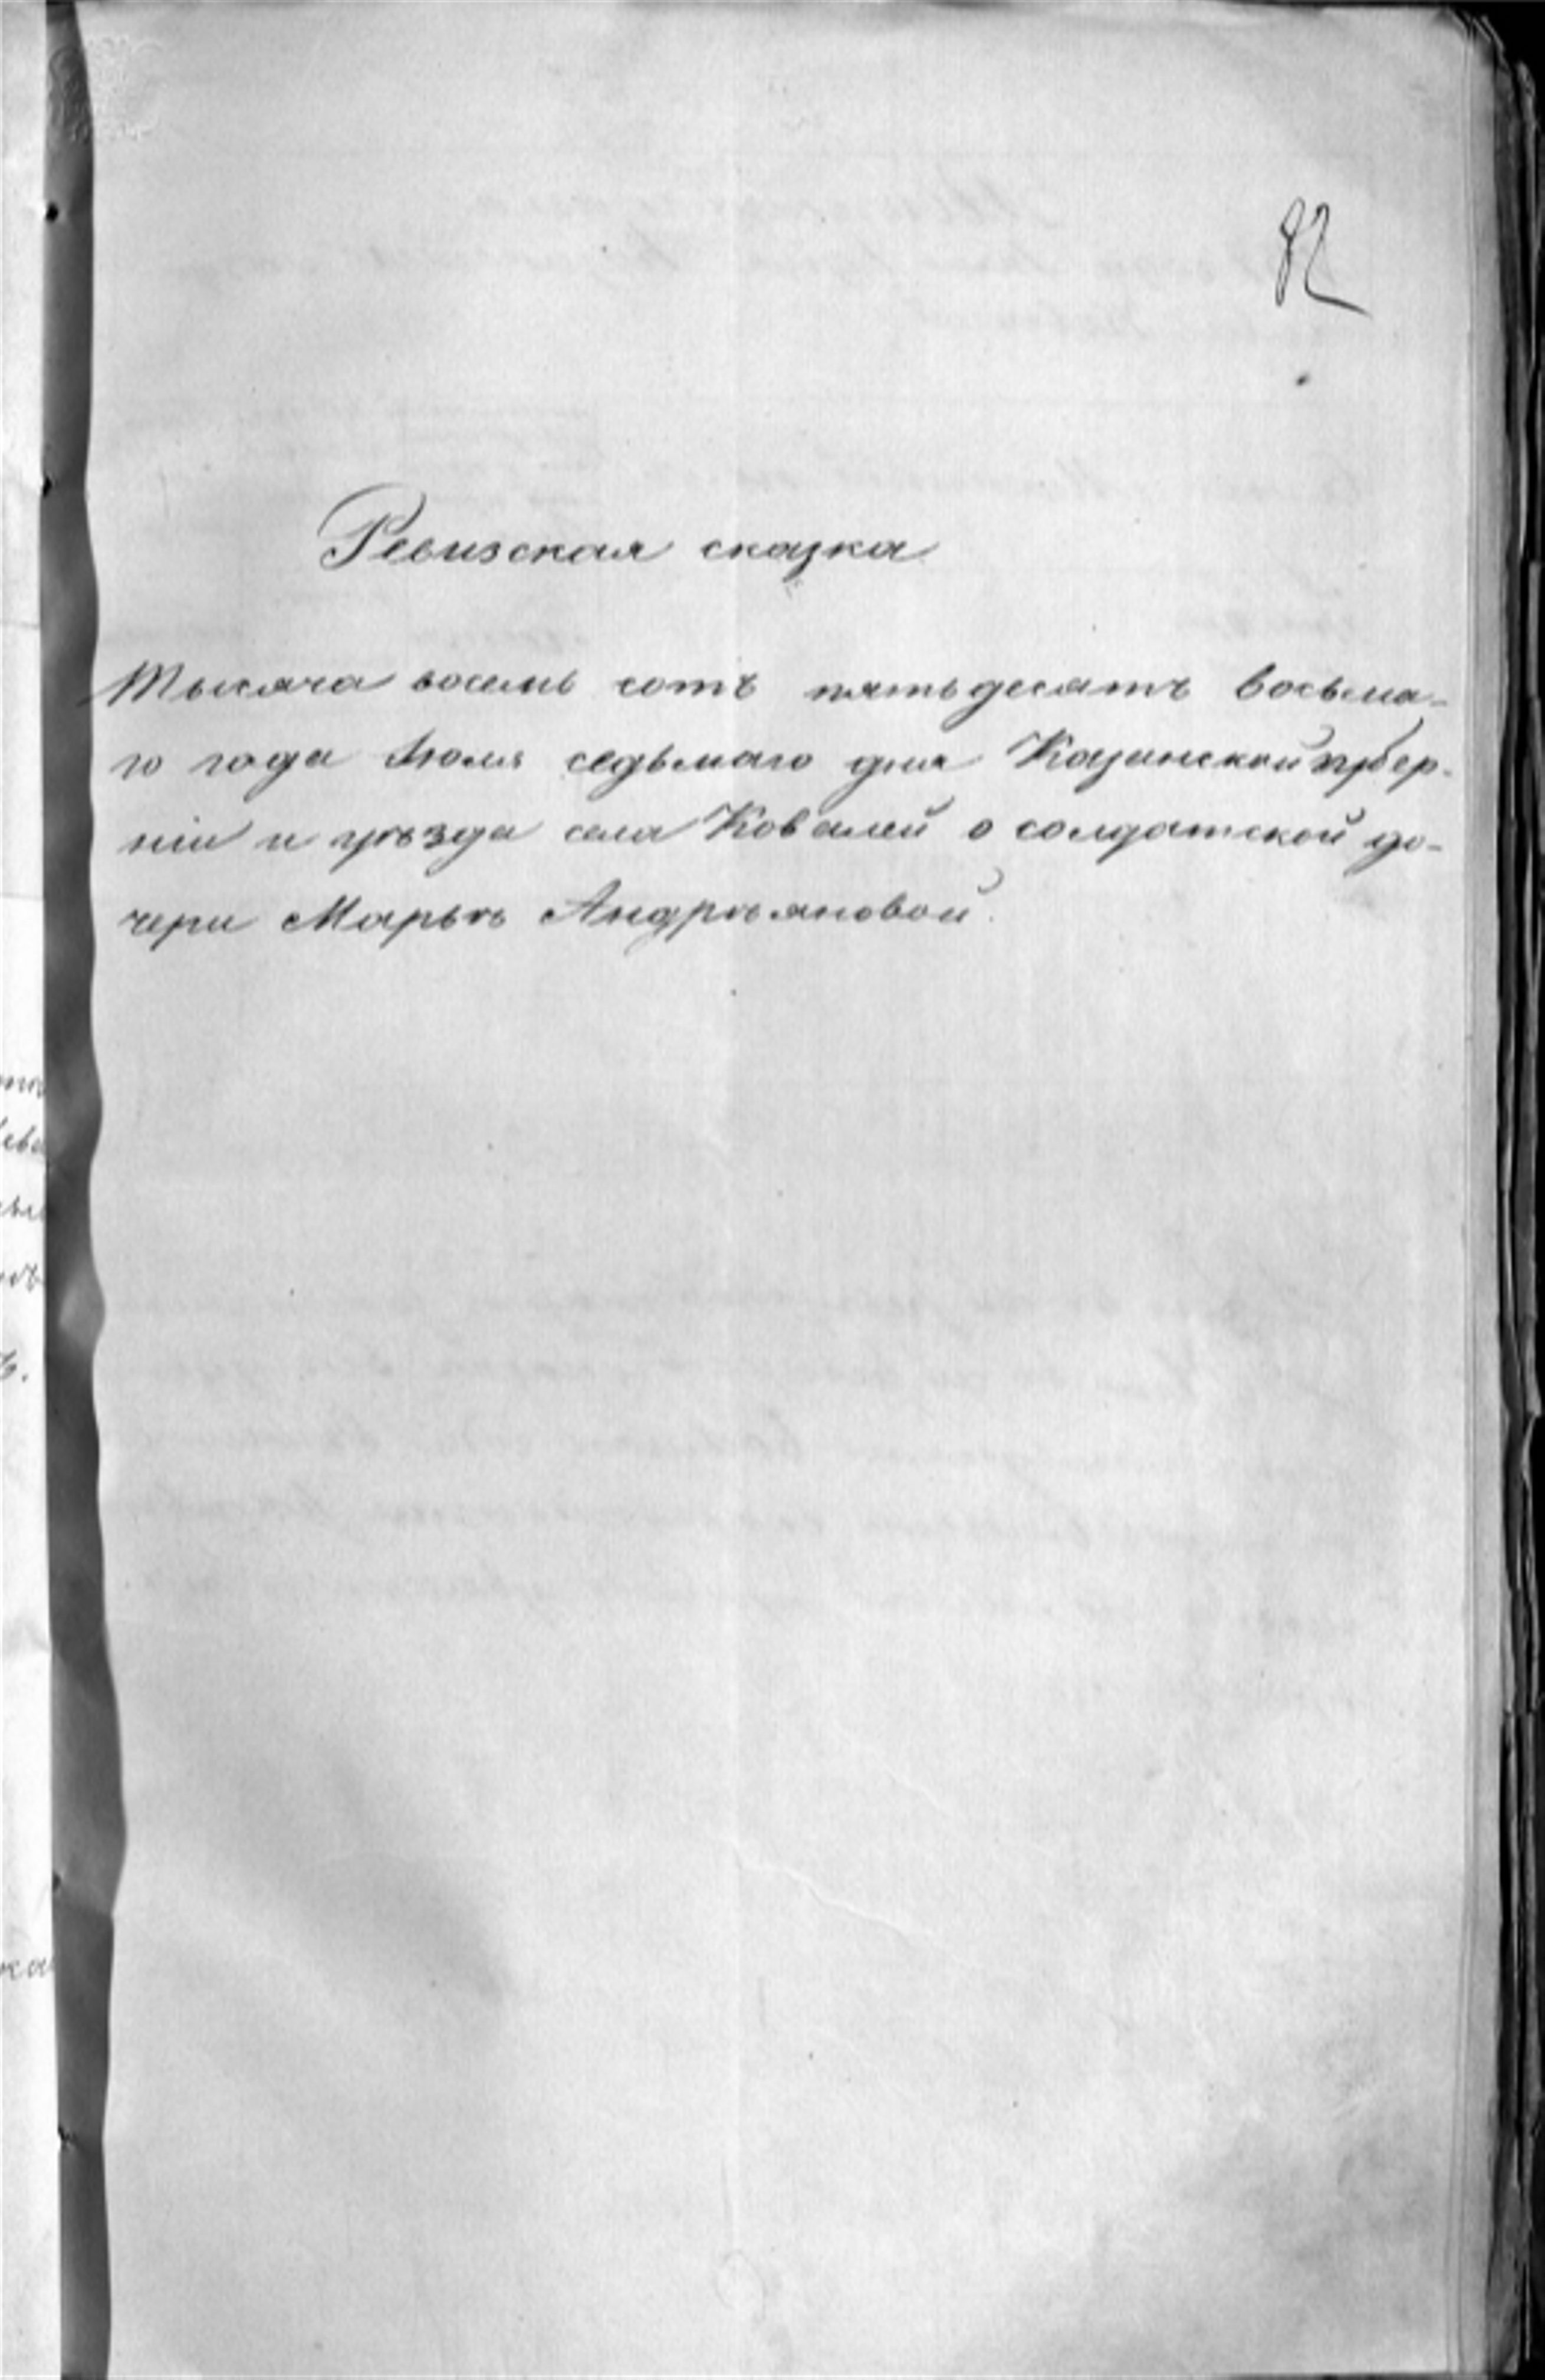 82
Ревизская сказка
Тысяча восемь сотъ пятьдесятъ восьма-
го года Іюля седьмаго дня Казанской губер-
ніи и уѣзда села Ковалей о солдатской до-
чери Марьѣ Андрѣяновой.